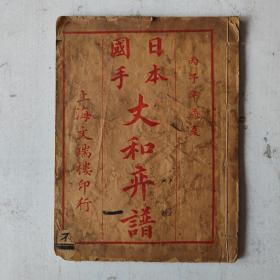 丙子年
日本
國手
丈和弈譜
上海文瑞樓印行